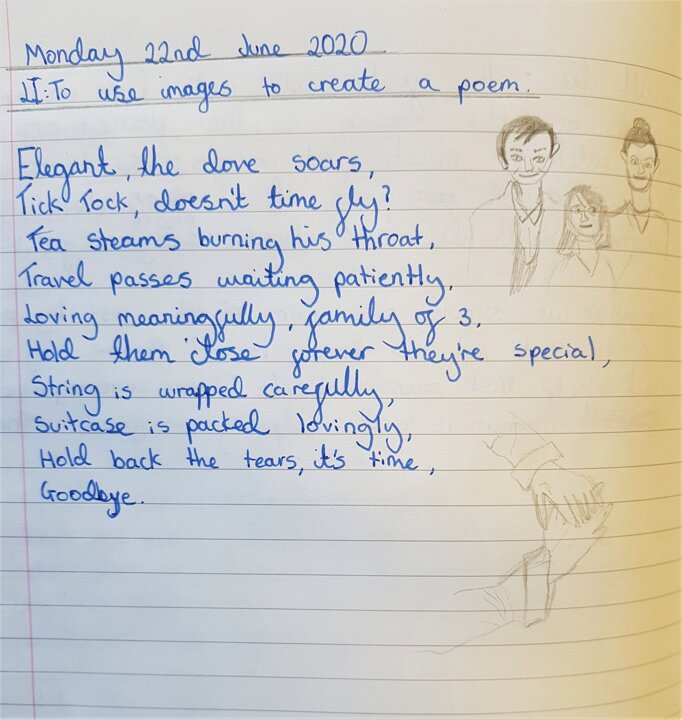 Monday 22nd June 2020
LI: To use images to create a poem.
Elegant, the dove soars,
Tick Tock, doesn't time fly?
Tea steams burning his throat,
Travel passes waiting patiently,
Loving meaningfully, family of 3,
Hold them close forever they're special,
String is wrapped carefully,
Suitcase is packed lovingly,
Hold back the tears, it's time,
Goodbye.